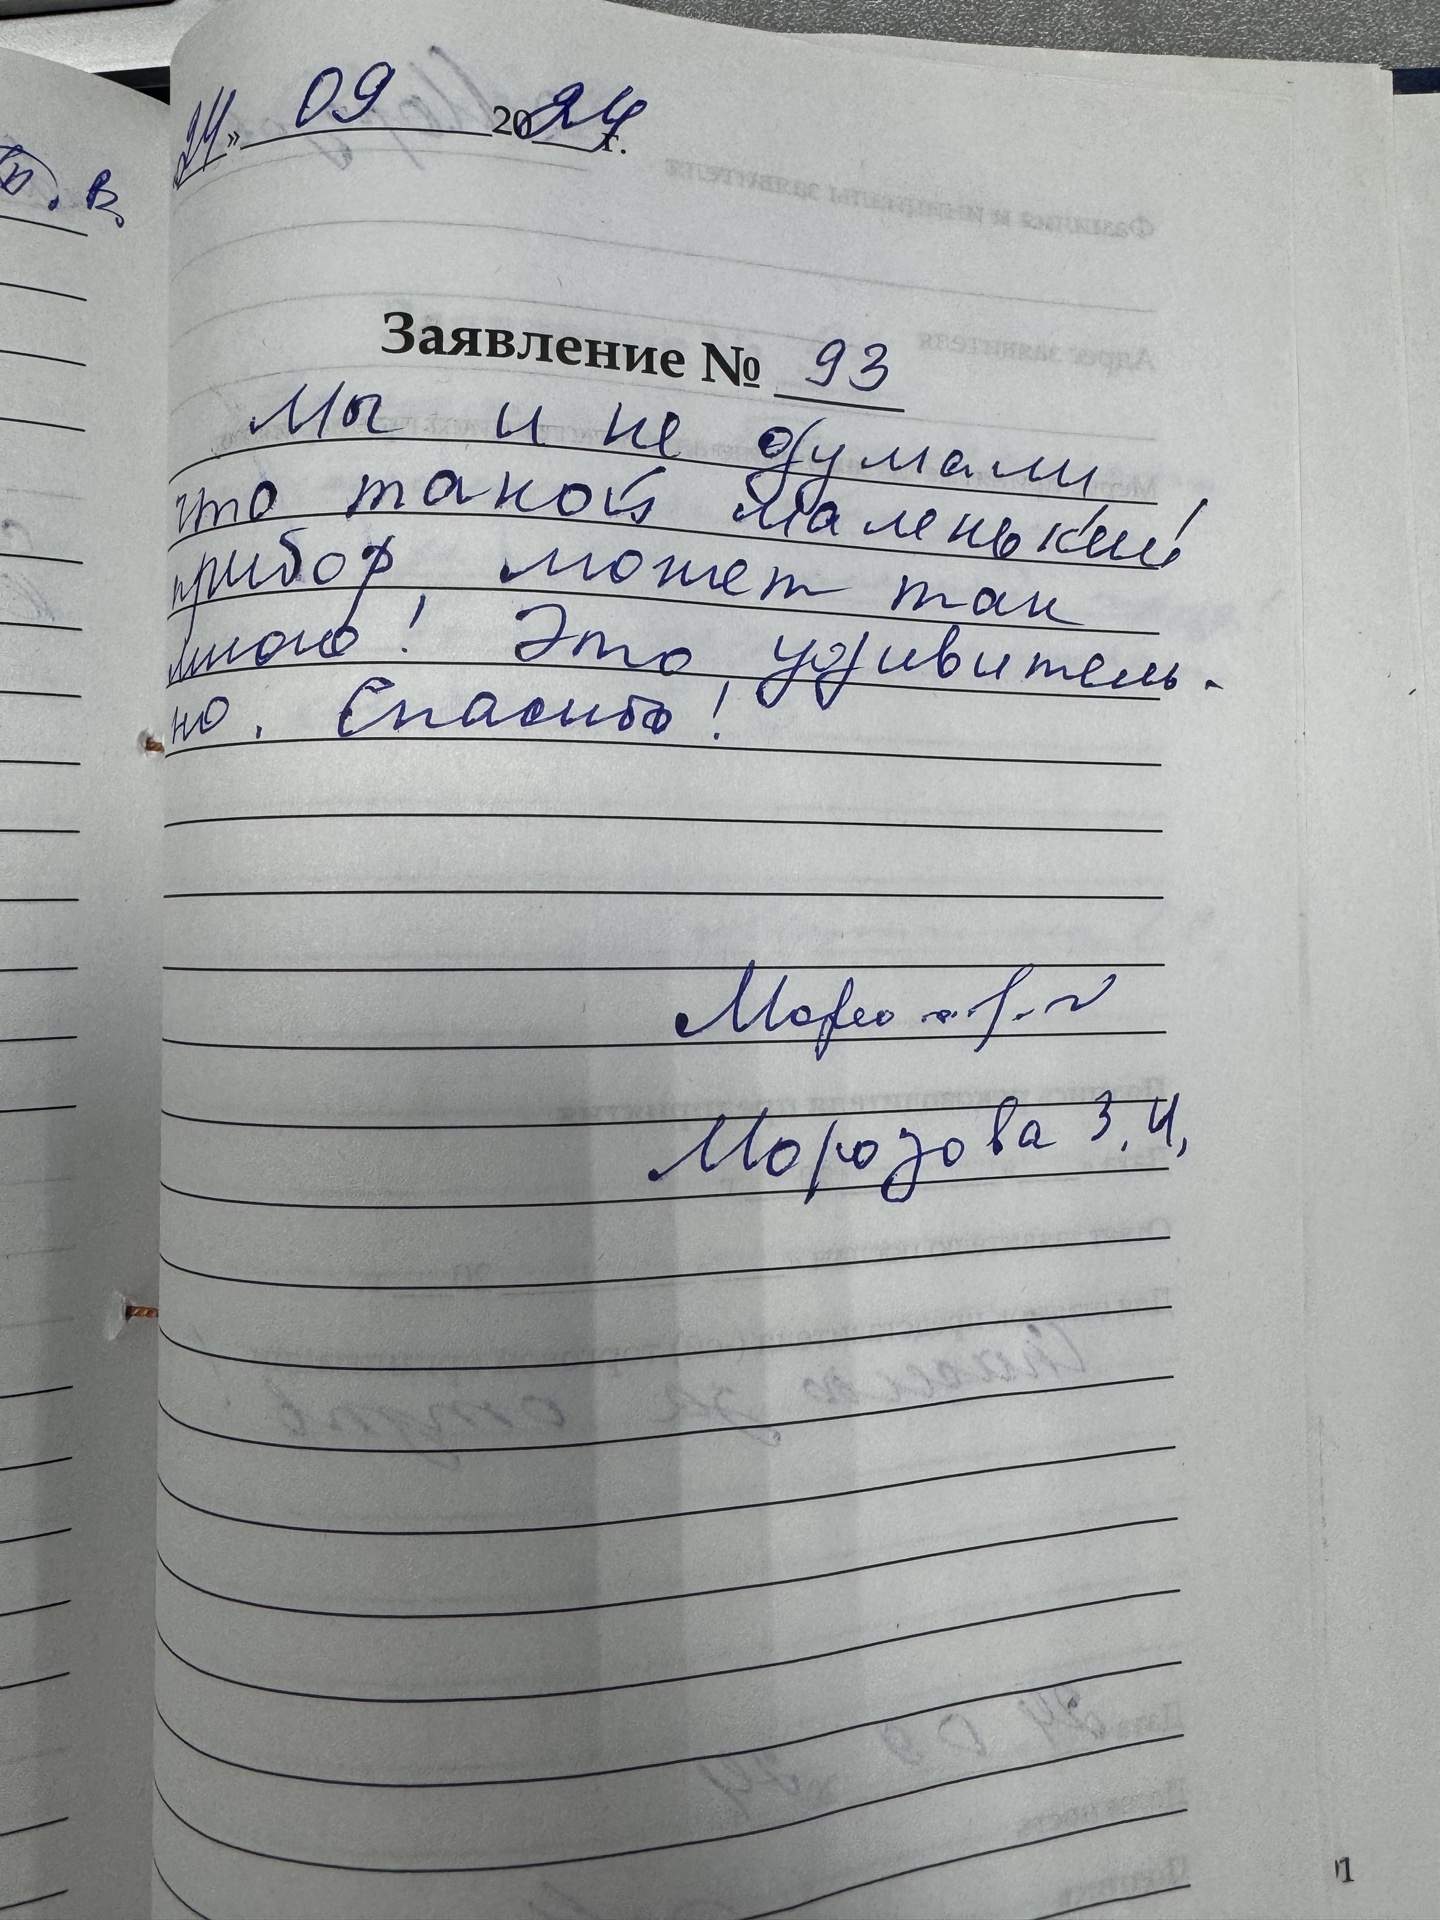 24» 09 2024 г.
Заявление № 93
Мы и не думали,
что такой маленький
прибор может так
много! Это удивитель-
но. Спасибо!
Морозова З.И,
В,